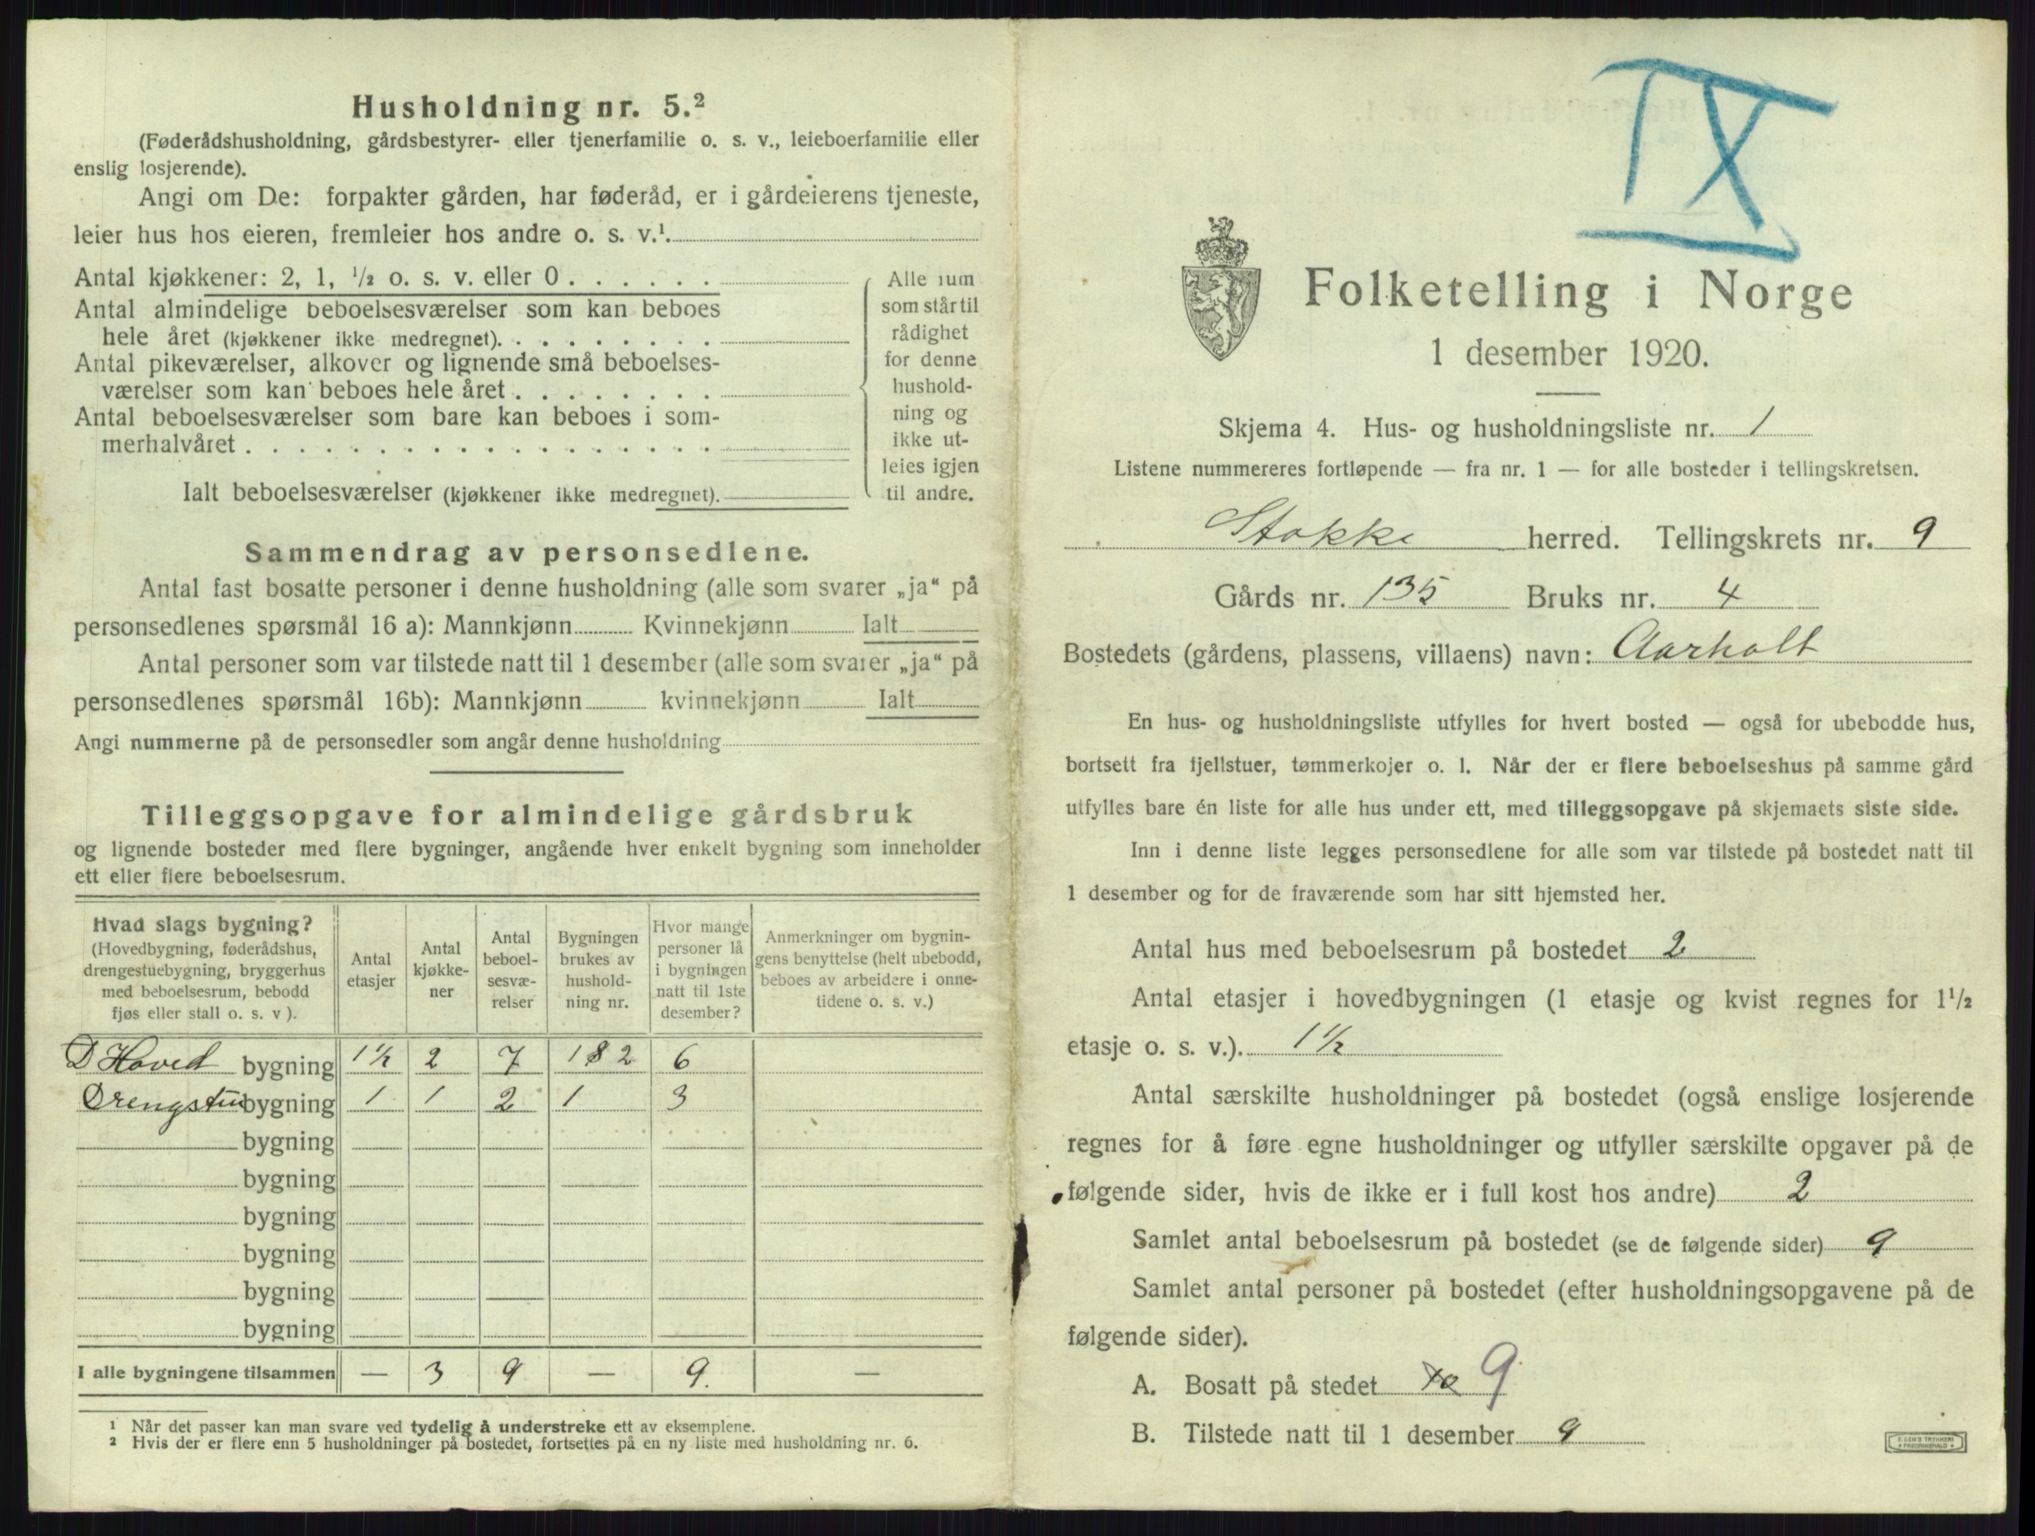 Husholdning nr. 5.²
(Føderådshusholdning, gårdsbestyrer- eller tjenerfamilie o. s. v., leieboerfamilie eller
enslig losjerende).
Angi om De: forpakter gården, har føderåd, er i gårdeierens tjeneste,
leier hus hos eieren, fremleier hos andre o. s. v.¹.
Antal kjøkkener: 2, 1, ½ o. s. v. eller 0 . . . . . .
Antal almindelige beboelsesværelser som kan beboes
hele året (kjøkkener ikke medregnet). . . . . . . . .
Antal pikeværelser, alkover og lignende små beboelses-
værelser som kan beboes hele året . . . . . . . .
Antal beboelsesværelser som bare kan beboes i som-
merhalvåret . . . . . . . . . . . . . . . . . .
Ialt beboelsesværelser (kjøkkener ikke medregnet).
Alle rum
som står til
rådighet
for denne
hushold-
ning og
ikke ut-
leies igjen
til andre.
Sammendrag av personsedlene.
Antal fast bosatte personer i denne husholdning (alle som svarer „ja“ på
personsedlenes spørsmål 16 a): Mannkjønn Kvinnekjønn Ialt
Antal personer som var tilstede natt til 1 desember (alle som svarer „ja“ på
personsedlenes spørsmål 16b): Mannkjønn kvinnekjønn Ialt
Angi nummerne på de personsedler som angår denne husholdning
Tilleggsopgave for almindelige gårdsbruk
og lignende bosteder med flere bygninger, angående hver enkelt bygning som inneholder
ett eller flere beboelsesrum.
Hvad slags bygning?
(Hovedbygning, føderådshus,
drengestuebygning, bryggerhus
med beboelsesrum, bebodd
fjøs eller stall o. s. v ).
Antal
etasjer
Antal
kjøkke-
ner
Antal
beboel-
sesvæ-
relser
Bygningen
brukes av
hushold-
ning nr.
Hvor mange
personer lå
i bygningen
natt til 1ste
desember?
Anmerkninger om bygnin-
gens benyttelse (helt ubebodd,
beboes av arbeidere i onne-
tidene o. s. v.)
D Hoved bygning 1½ 2 7 1 & 2 6
Drengstue bygning 1 1 2 1 3
bygning
bygning
bygning
bygning
bygning
bygning
I alle bygningene tilsammen — 3 9 — 9. —
¹ Når det passer kan man svare ved tydelig å understreke ett av eksemplene.
² Hvis der er flere enn 5 husholdninger på bostedet, fortsettes på en ny liste med husholdning nr. 6.
IX
Folketelling i Norge
1 desember 1920.
Skjema 4. Hus- og husholdningsliste nr. 1
Listene nummereres fortløpende — fra nr. 1 — for alle bosteder i tellingskretsen.
Stokke herred. Tellingskrets nr. 9
Gårds nr. 135 Bruks nr. 4
Bostedets (gårdens, plassens, villaens) navn: Aarholt
En hus- og husholdningsliste utfylles for hvert bosted — også for ubebodde hus,
bortsett fra fjellstuer, tømmerkojer o. l. Når der er flere beboelseshus på samme gård
utfylles bare én liste for alle hus under ett, med tilleggsopgave på skjemaets siste side.
Inn i denne liste legges personsedlene for alle som var tilstede på bostedet natt til
1 desember og for de fraværende som har sitt hjemsted her.
Antal hus med beboelsesrum på bostedet 2
Antal etasjer i hovedbygningen (1 etasje og kvist regnes for 1½
etasje o. s. v.). 1½
Antal særskilte husholdninger på bostedet (også enslige losjerende
regnes for å føre egne husholdninger og utfyller særskilte opgaver på de
følgende sider, hvis de ikke er i full kost hos andre) 2
Samlet antal beboelsesrum på bostedet (se de følgende sider) 9
Samlet antal personer på bostedet (efter husholdningsopgavene på de
følgende sider).
A. Bosatt på stedet 10 9
B. Tilstede natt til 1 desember 9